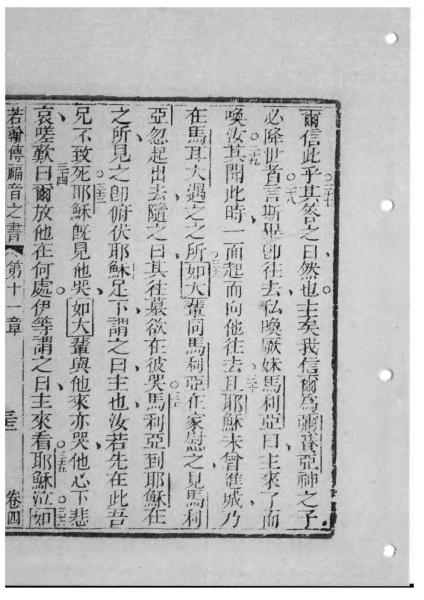 爾信此乎二十七其答之曰然也主矣我信爾為彌賽亞神之子
必降世者二十八言斯畢即往去私喚厥妹馬利亞曰主來了而
喚汝二十九其聞此時一面起而向他往去三十且耶穌未曾進城乃
在馬耳大遇之之所三十一如大輩同馬利亞在家慰之見馬利
亞忽起出去隨之曰其往墓欲在彼哭三十二馬利亞到耶穌在
之所見之即俯伏耶穌足下謂之曰主也汝若先在此吾
兄不致死三十三耶穌既見他哭如大輩與他來亦哭他心下悲
哀嗟歎三十四曰爾放他在何處伊等謂之曰主來看三十五耶穌泣三十六如
若翰傳福音之書 第十一章 卷四